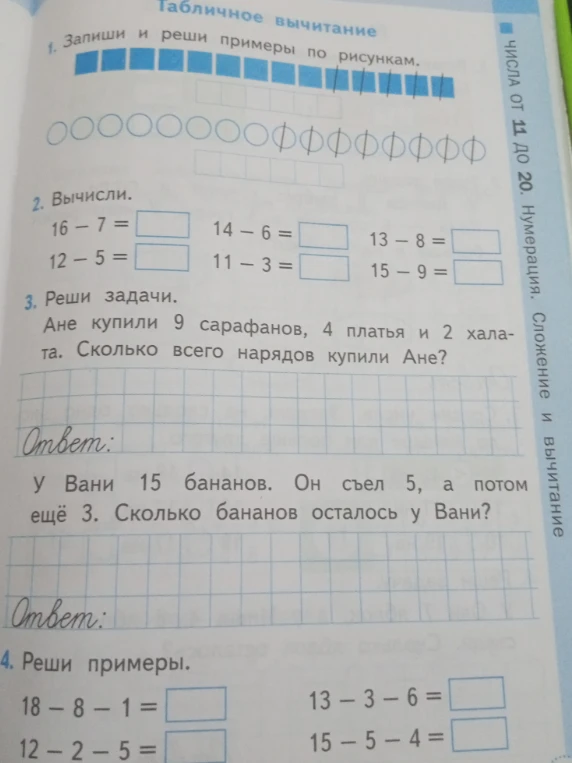 Табличное вычитание
1. Запиши и реши примеры по рисункам.
2. Вычисли.
16 − 7 =
14 − 6 =
13 − 8 =
12 − 5 =
11 − 3 =
15 − 9 =
3. Реши задачи.
Ане купили 9 сарафанов, 4 платья и 2 хала-
та. Сколько всего нарядов купили Ане?
Ответ:
У Вани 15 бананов. Он съел 5, а потом
ещё 3. Сколько бананов осталось у Вани?
Ответ:
4. Реши примеры.
18 − 8 − 1 =
13 − 3 − 6 =
12 − 2 − 5 =
15 − 5 − 4 =
ЧИСЛА ОТ 11 ДО 20. Нумерация. Сложение и вычитание